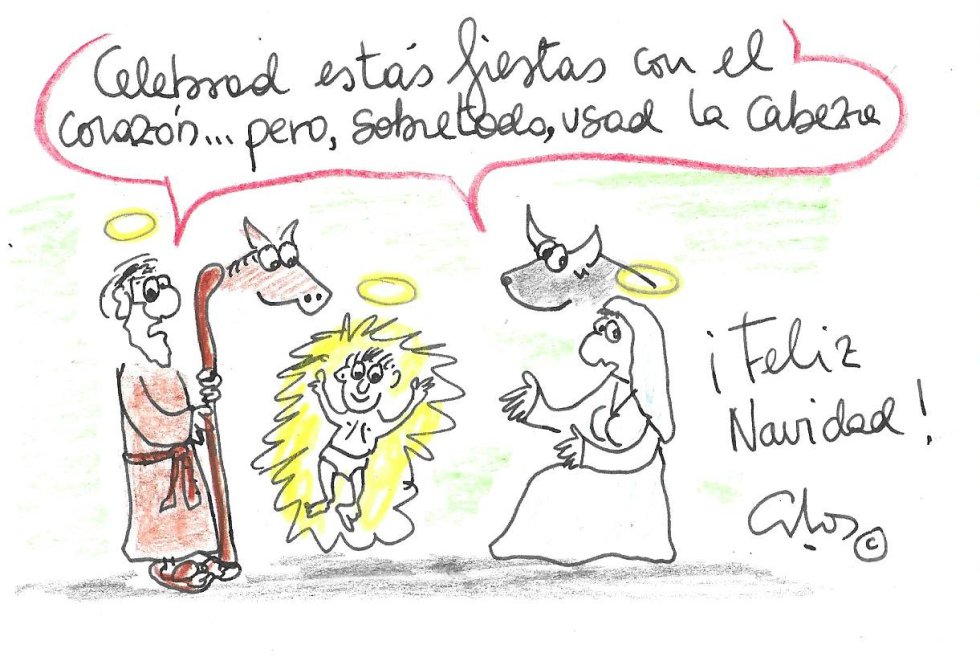 Celebrad estás fiestas con el
corazón... pero, sobretodo, usad la cabeza
¡Feliz
Navidad!
©